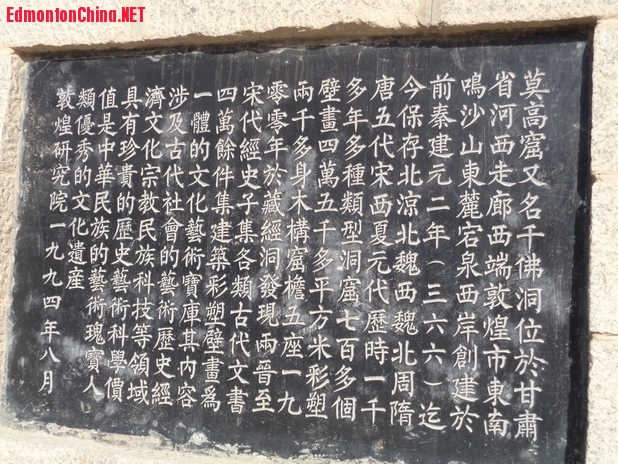 EdmontonChina.NET
莫高窟又名千佛洞位於甘肅
省河西走廊西端敦煌市東南
鳴沙山東麓宕泉西岸創建於
前秦建元二年(三六六)迄
今保存北涼北魏西魏北周隋
唐五代宋西夏元代歷時一千
多年多種類型洞窟七百多個
壁畫四萬五千多平方米彩塑
兩千多身木構窟檐五座一九
零零年於藏經洞發現兩晉至
宋代經史子集各類古代文書
四萬餘件集建築彩塑壁畫爲
一體的文化藝術寶庫其内容
涉及古代社會的藝術歷史經
濟文化宗教民族科技等領域
具有珍貴的歷史藝術科學價
值是中華民族的藝術瑰寶人
類優秀的文化遺産
敦煌研究院一九九四年八月